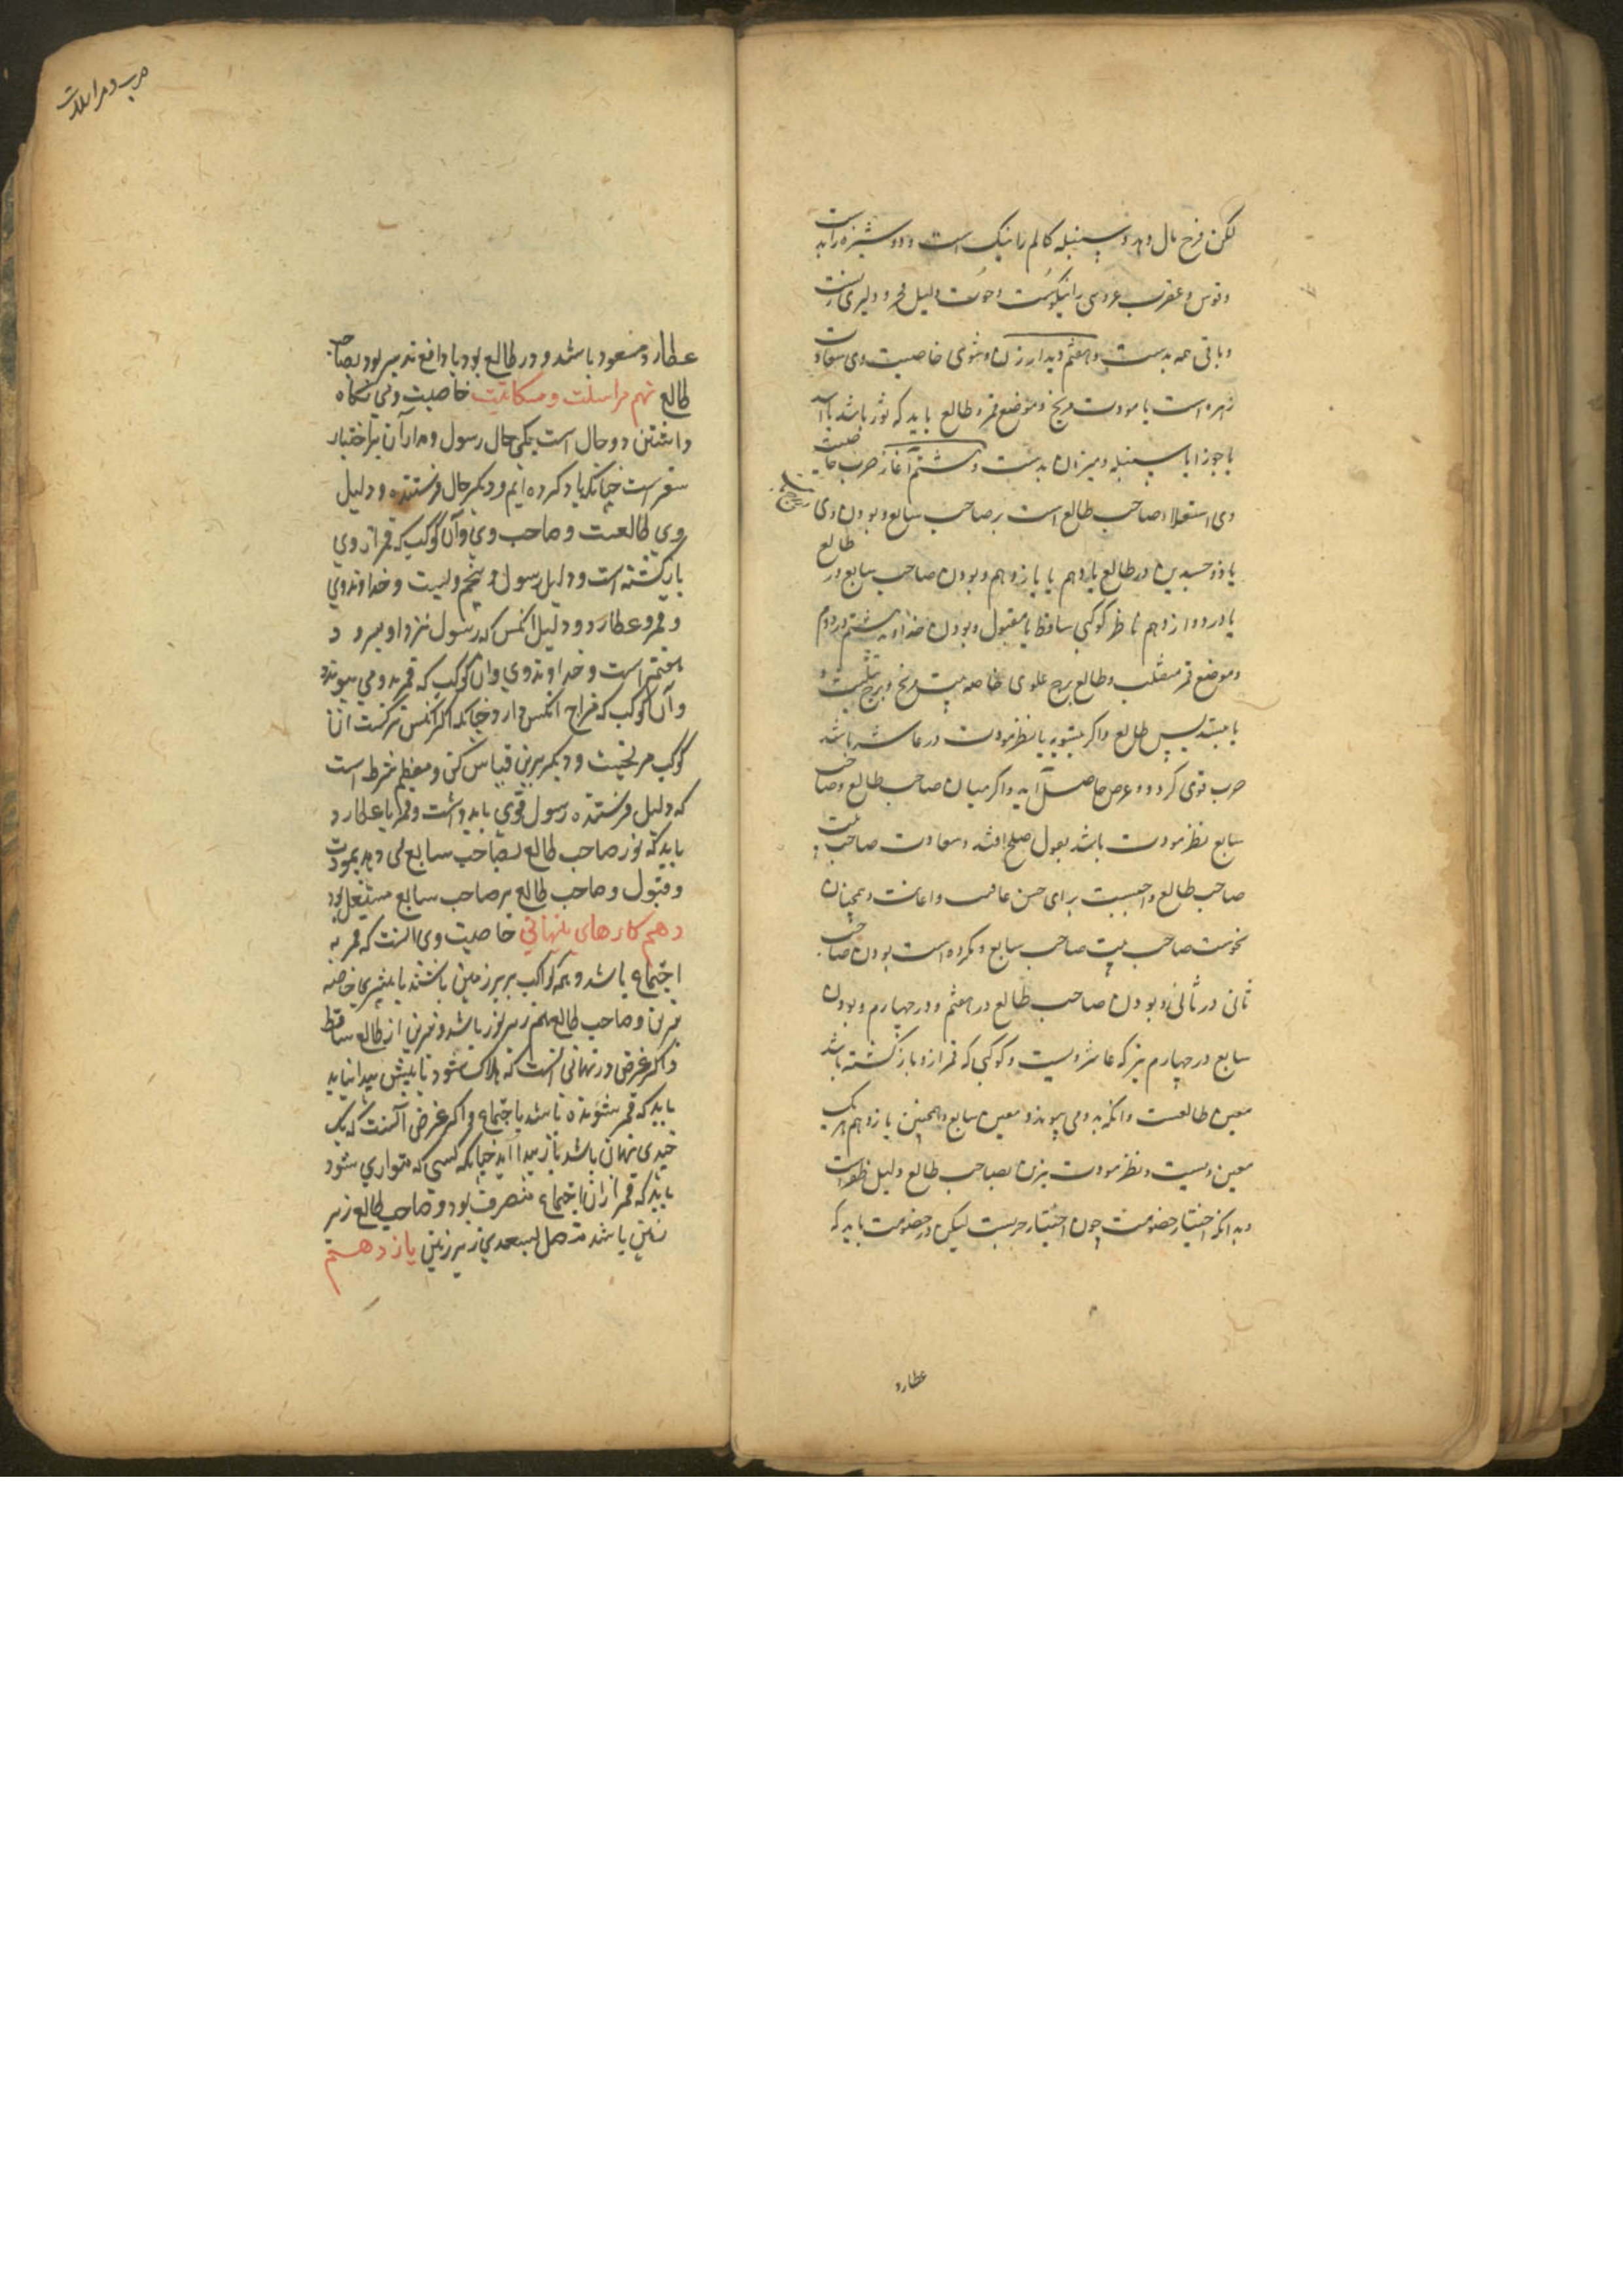 لکن فرخ مال دهد و سنبله کالم را نیک است و دوشیزه را بد است
و قوس و عقرب عروسی را نیکوست و حوت دلیل و دلیری زنست
و باقی همه بدست و هفتم دیدار زن و شوی خاصیت وی سعادت
زهره است یا مودت مریخ و موضع قمر و طالع باید که ثور باشد یا اسد
یا جوزا یا سنبله و میزان بد نیست و هشتم آغاز حرب خاصیت
وی استعلاء صاحب طالع است بر صاحب سابع و بودن وی
یا ذو جسدین در طالع یا دهم یا یازدهم و بودن صاحب سابع در طالع
یا در دوازدهم ناظر کوکبی ساقط نا مقبول و بودن خداوند هشتم در دوم
و موضع قمر منقلب و طالع برج علوی خاصه بیت مریخ و برج تثلیث و
یا تسدیس طالع و اگر مشتری یا نظر مودت در عاشر باشد
حرب قوی گردد و غرض حاصل آید و اگر میان صاحب طالع و صاحب
سابع نظر مودت باشد بقبول صلح افتد و سعادت صاحب بیت
صاحب طالع واجبست برای حسن عاقبت و اعانت و همچنان
نحوست صاحب بیت صاحب سابع و مکروه است بودن صاحب
ثانی در ثانی و بودن صاحب طالع در هفتم و در چهارم و بودن
سابع در چهارم نیز که عاشر ویست و کوکبی که قمر ازو بازگشته باشد
معین طالعست و آنکه بدو می پیوندد معین سابع و همچنین یازدهم هر یک
معین ویست و نظر مودت نیرین بصاحب طالع دلیل ظفر است
و بدانکه اختیار خصومت چون اختیار حربست لیکن در خصومت باید که
عطارد
حرب و مراسلات
عطارد مسعود باشد و در طالع بود یا دافع تدبیر بود بصاحب
طالع نهم مراسلت و مکاتبت خاصیت وی نگاه
داشتن دو حال است یکی حال رسول و مدار آن بر اختیار
سفر است چنانکه یاد کرده ایم و دیگر حال فرستنده و دلیل
وی طالعست و صاحب وی و آن کوکب که قمر از وی
بازگشته است و دلیل رسول پنجم ویست و خداوند وی
و قمر و عطارد و دلیل آنکس که رسول نزد او میرود
هفتم است و خداوند وی و آن کوکب که قمر بدو می پیوندد
و آن کوکب که مزاج آنکس دارد چنانکه اگر آنکس ترکست آن
کوکب مریخست و دیگر برین قیاس کن و معظم شرط است
که دلیل فرستنده رسول قوی باید داشت و قمر یا عطارد
باید که نور صاحب طالع بصاحب سابع می دهد بمودت
و قبول و صاحب طالع بر صاحب سابع مستعلی بود
دهم کارهای پنهانی خاصیت وی آنست که قمر به
اجتماع باشد و همه کواکب زیر زمین باشند یا بیشتری خاصه
نیرین و صاحب طالع هم زیر نور باشد و نیرین از طالع ساقط
و اگر غرض در نهانی آنست که هلاک شود تا بیش پیدا نیاید
باید که قمر شونده باشد باجتماع و اگر غرض آنست که یک
چندی نهان باشد باز پیدا آید چنانکه کسی که متواری شود
باید که قمر از ان اجتماع منصرف بود و صاحب طالع زیر
زمین باشد متصل بسعدی زیر زمین یازدهم